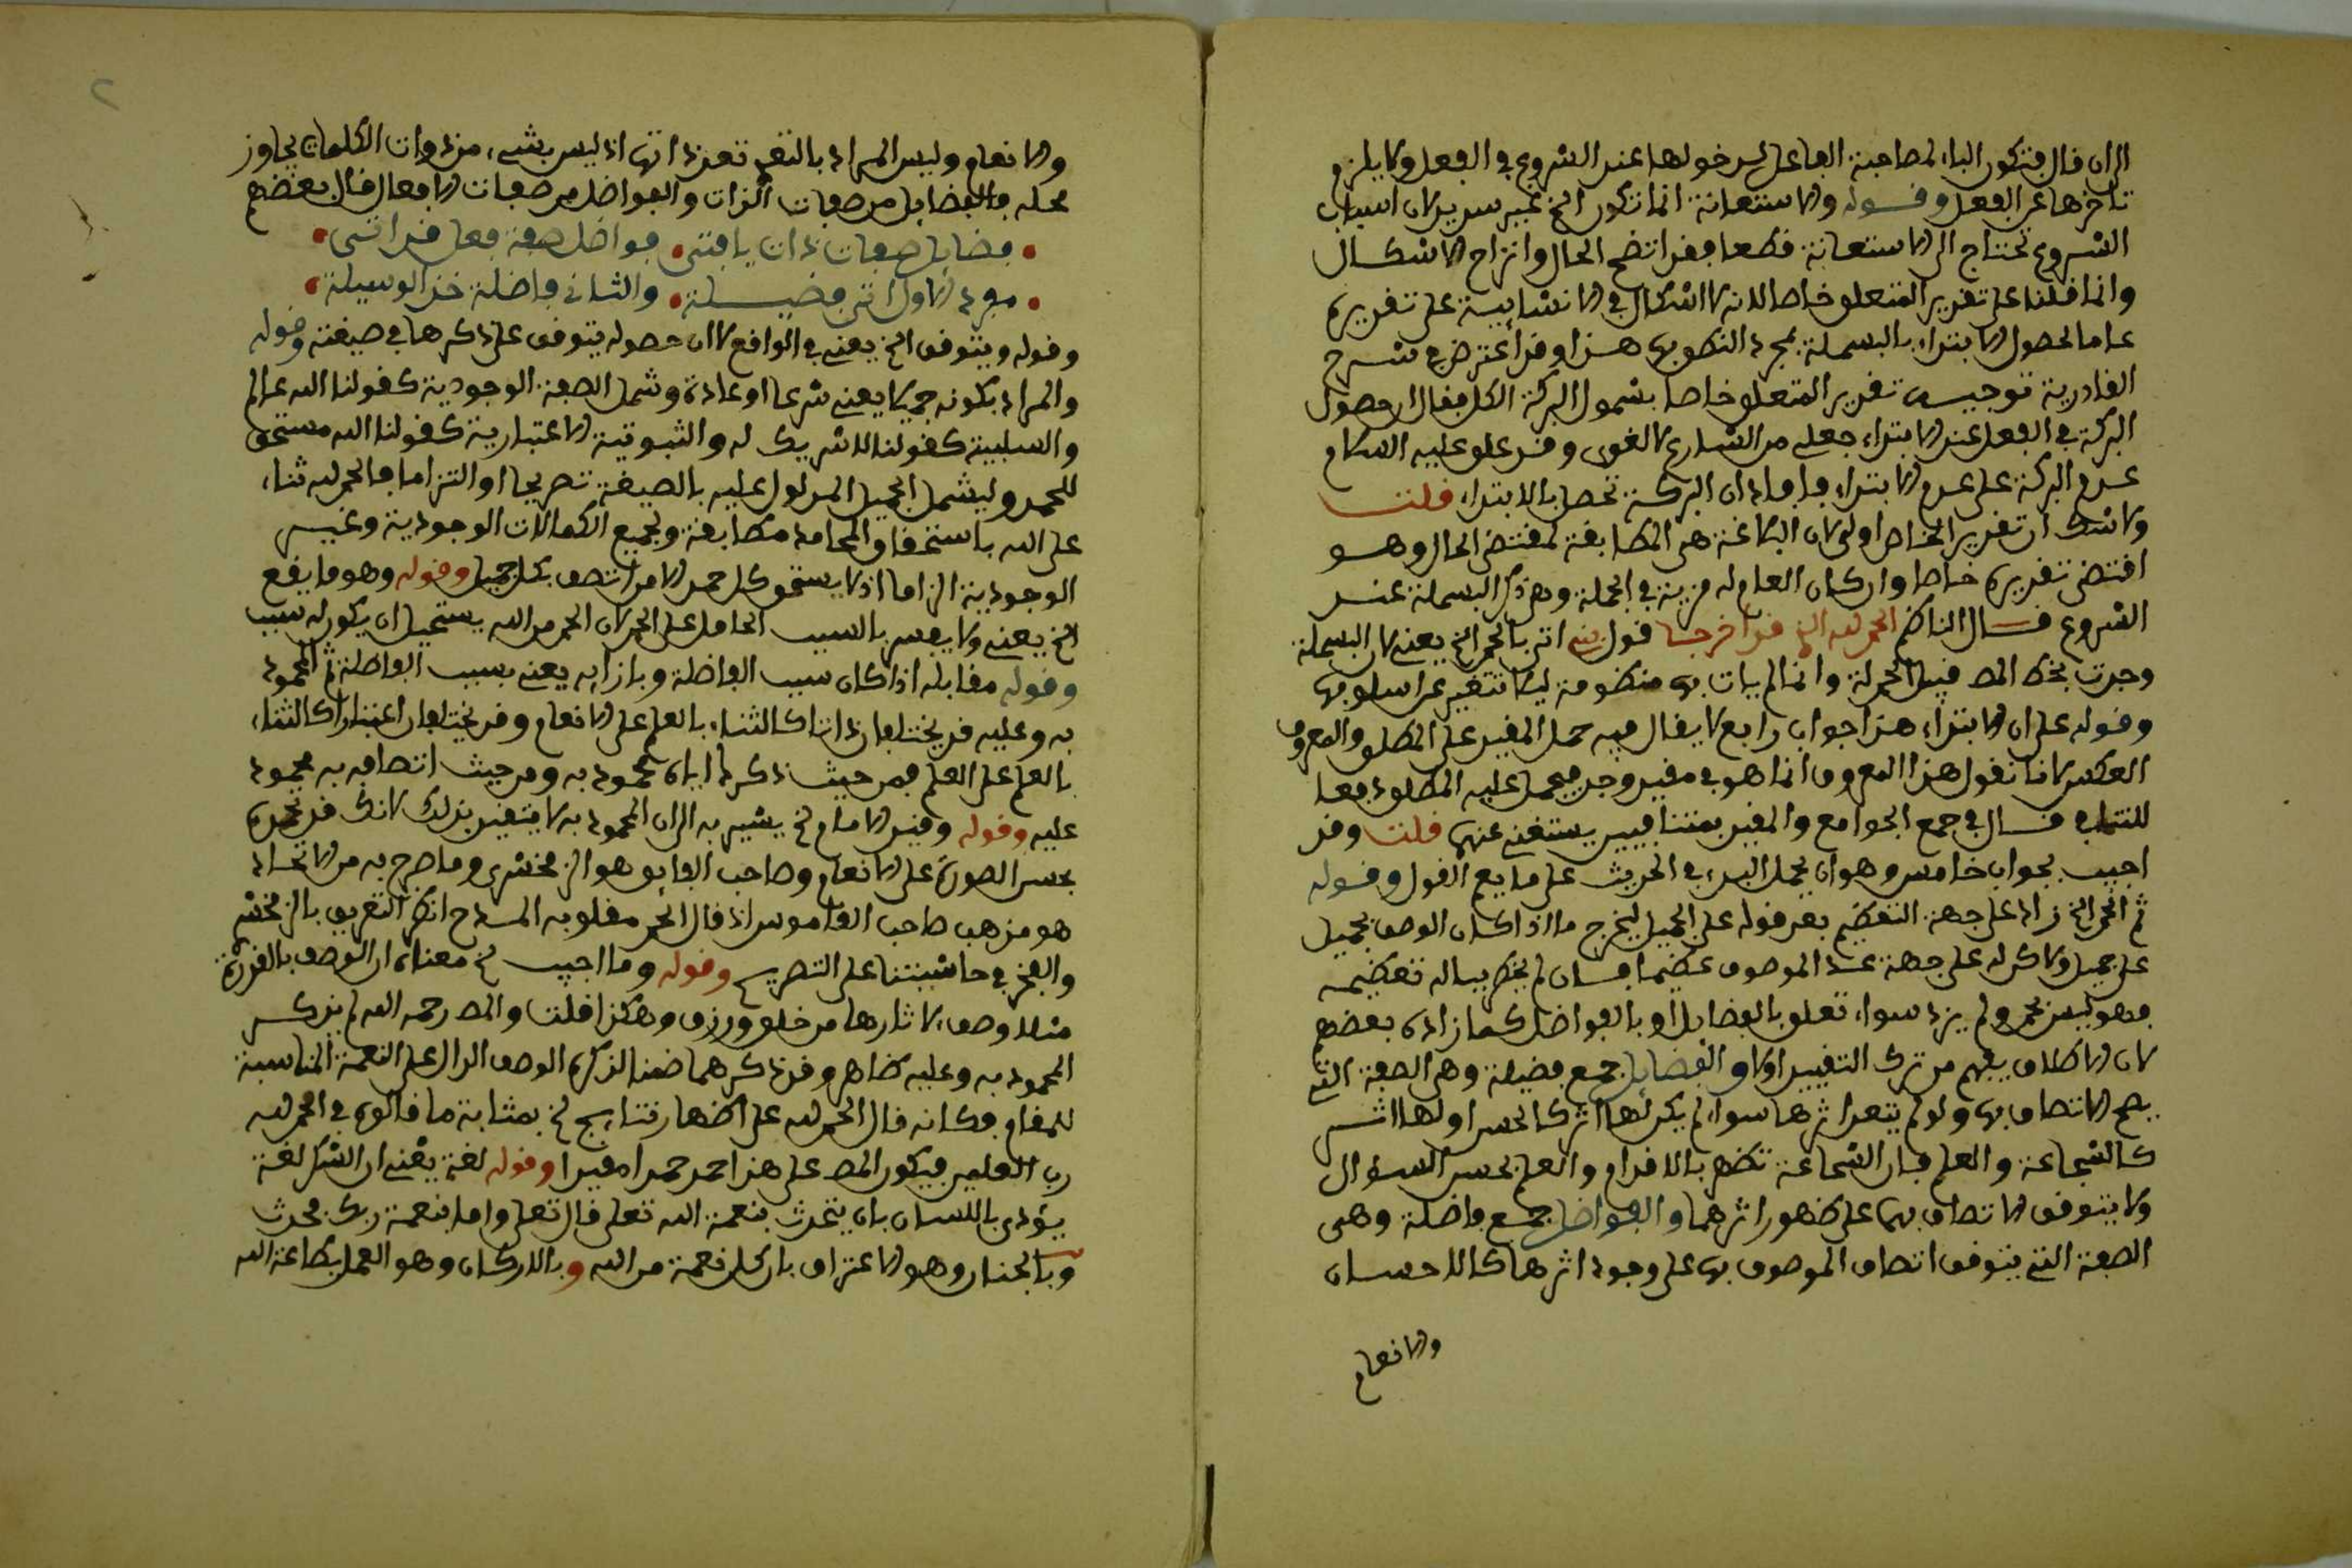 الى ان قال فتكون الباء لمصاحبة الفاعل لدخولها عند الشروع في الفعل ولا يلزم
تاخرها عن الفعل وقوله والاستعانة انما تكون الخ غير سديد لان اسباب
الشروع تحتاج الى الاستعانة قطعا فقد اتضح الحال وانزاح الاشكال
وانما قلنا على تقدير المتعلق خاصا لانه لا اشكال في الانشائية على تقديره
عاما لحصول الابتداء بالبسملة بمجرد النطق بها هذا وقد اعترض في شرح
القادرية توجيه تقدير المتعلق خاصا بشمول البركة الكل فقال ان حصول
البركة في الفعل عند الابتداء جعلي من الشارع لا لغوي وقد علق عليه السلام
عدم البركة على عدم الابتداء فافاد ان البركة تحصل بالابتداء قلت
ولا شك ان تقدير الخاص اولى لان البلاغة هي المطابقة لمقتضى الحال وهو
اقتضى تقديره خاصا وان كان العام له مزية في الجملة وهي ذكر البسملة عند
الشروع قال الناظم الحمد لله الذي قد اخرجا قول ينه اتى بالحمد الخ يعني لان البسملة
وجدت بخط المص قبل الحمدلة وانما لم يات بها منظومة ليلا تتغير عن اسلوبها
وقوله على ان الابتداء هذا جواب رابع لا يقال فيه حمل المقيد على المطلق والمعروف
العكس لانا نقول هذا المعروف انما هو في مقيد وجد فيحمل عليه المطلق دفعا
للتنافي قال في جمع الجوامع والمقيد بمتنافيين يستغنى عنهما قلت وقد
اجيب بجواب خامس وهو ان يحمل البدء في الحديث على ما يعم القول وقوله
ثم الحمد الخ زاد على جهة التعظيم بعد قوله على الجميل ليخرج ما اذا كان الوصف بجميل
على جميل ولكن لا على جهة عد الموصوف عظيما بان لم يخطر بباله تعظيمه
فهو ليس بحمد ولم يزد سواء تعلق بالفضائل او بالفواضل كما زاده بعضهم
لان الاطلاق يفهم من ترك التقييد اولا والفضايل جمع فضيلة وهي الصفة التي
يصح الاتصاف بها ولو لم يتعد اثرها سواء لم يكن لها اثر كالحسن او لها اثر
كالشجاعة والعلم فان الشجاعة تظهر بالاقدام والعلم بحسن السؤال
ولا يتوقف الاتصاف بهما على ظهور اثرهما والفواضل جمع فاضلة وهي
الصفة التي يتوقف اتصاف الموصوف بها على وجود اثرها كالاحسان
والانعام
٢
والانعام وليس المراد بالتعدي تعدي ذاتها اذ ليس بشيء من ذوات الكلمات يجاوز
محله فالفضايل من صفات الذات والفواضل من صفات الافعال قال بعضهم
فضايل صفات ذات يا فتى فواضل صفة فعل قد اتى
مفرد الاول اتى فضيلة والثاني فاضلة خذ الوسيلة
وقوله ويتوقف الخ يعني في الواقع لا ان حصوله يتوقف على ذكرها في صيغته وقوله
والمراد بكونه جميلا يعني شرعا او عادة وشمل الصفة الوجودية كقولنا الله عالم
والسلبية كقولنا لا شريك له والثبوتية الاعتبارية كقولنا الله مستحق
للحمد وليشمل الجميل المدلول عليه بالصيغة تصريحا او التزاما فالحمد لله ثناء
على الله باستحقاق المحامد مطابقة وبجميع الكمالات الوجودية وغير
الوجودية التزاما اذ لا يستحق كل حمد الا من اتصف بكل جميل وقوله وهو ما يقع
الخ يعني ولا يفسر بالسبب الحامل على الحمد لان الحمد من الله يستحيل ان يكون له سبب
وقوله مقابله اذا كان سبب الفاضلة وبازايه يعني بسبب الفاضلة ثم المحمود
به وعليه قد يختلفان ذاتا كالثناء بالعلم على الانعام وقد يختلفان اعتبارا كالثناء
بالعلم على العلم فمن حيث ذكرك اياه محمود به ومن حيث اتصافه به محمود
عليه وقوله وقيد الامام الخ يشير به الى ان المحمود به لا يتقيد بذلك لانك قد تحمده
بحسن الصورة على الانعام وصاحب الفايق هو الزمخشري وما صرح به من الاتحاد
هو مذهب صاحب القاموس اذ قال الحمد مقلوبه المدح انظر التعريف بالزمخشري
والفخر في حاشيتنا على التصريح وقوله وما اجيب الخ معناه ان الوصف بالقدرة
مثلا وصف لاثارها من خلق ورزق وهكذا قلت والمص رحمه الله لم يذكر
المحمود به وعليه ظاهر وقد ذكرهما ضمنا لذكره الوصف الدال على النعمة المناسبة
للمقام فكانه قال الحمد لله على اظهار نتايج الخ بمثابة ما قالوه في الحمد لله
رب العلمين فيكون المص على هذا حمد حمدا مقيدا وقوله لغة يعني ان الشكر لغة
يؤدى باللسان بان يتحدث بنعمة الله تعلى قال تعلى واما بنعمة ربك فحدث
وبالجنان وهو الاعتراف بان كل نعمة من الله وبالاركان وهو العمل بطاعة الله